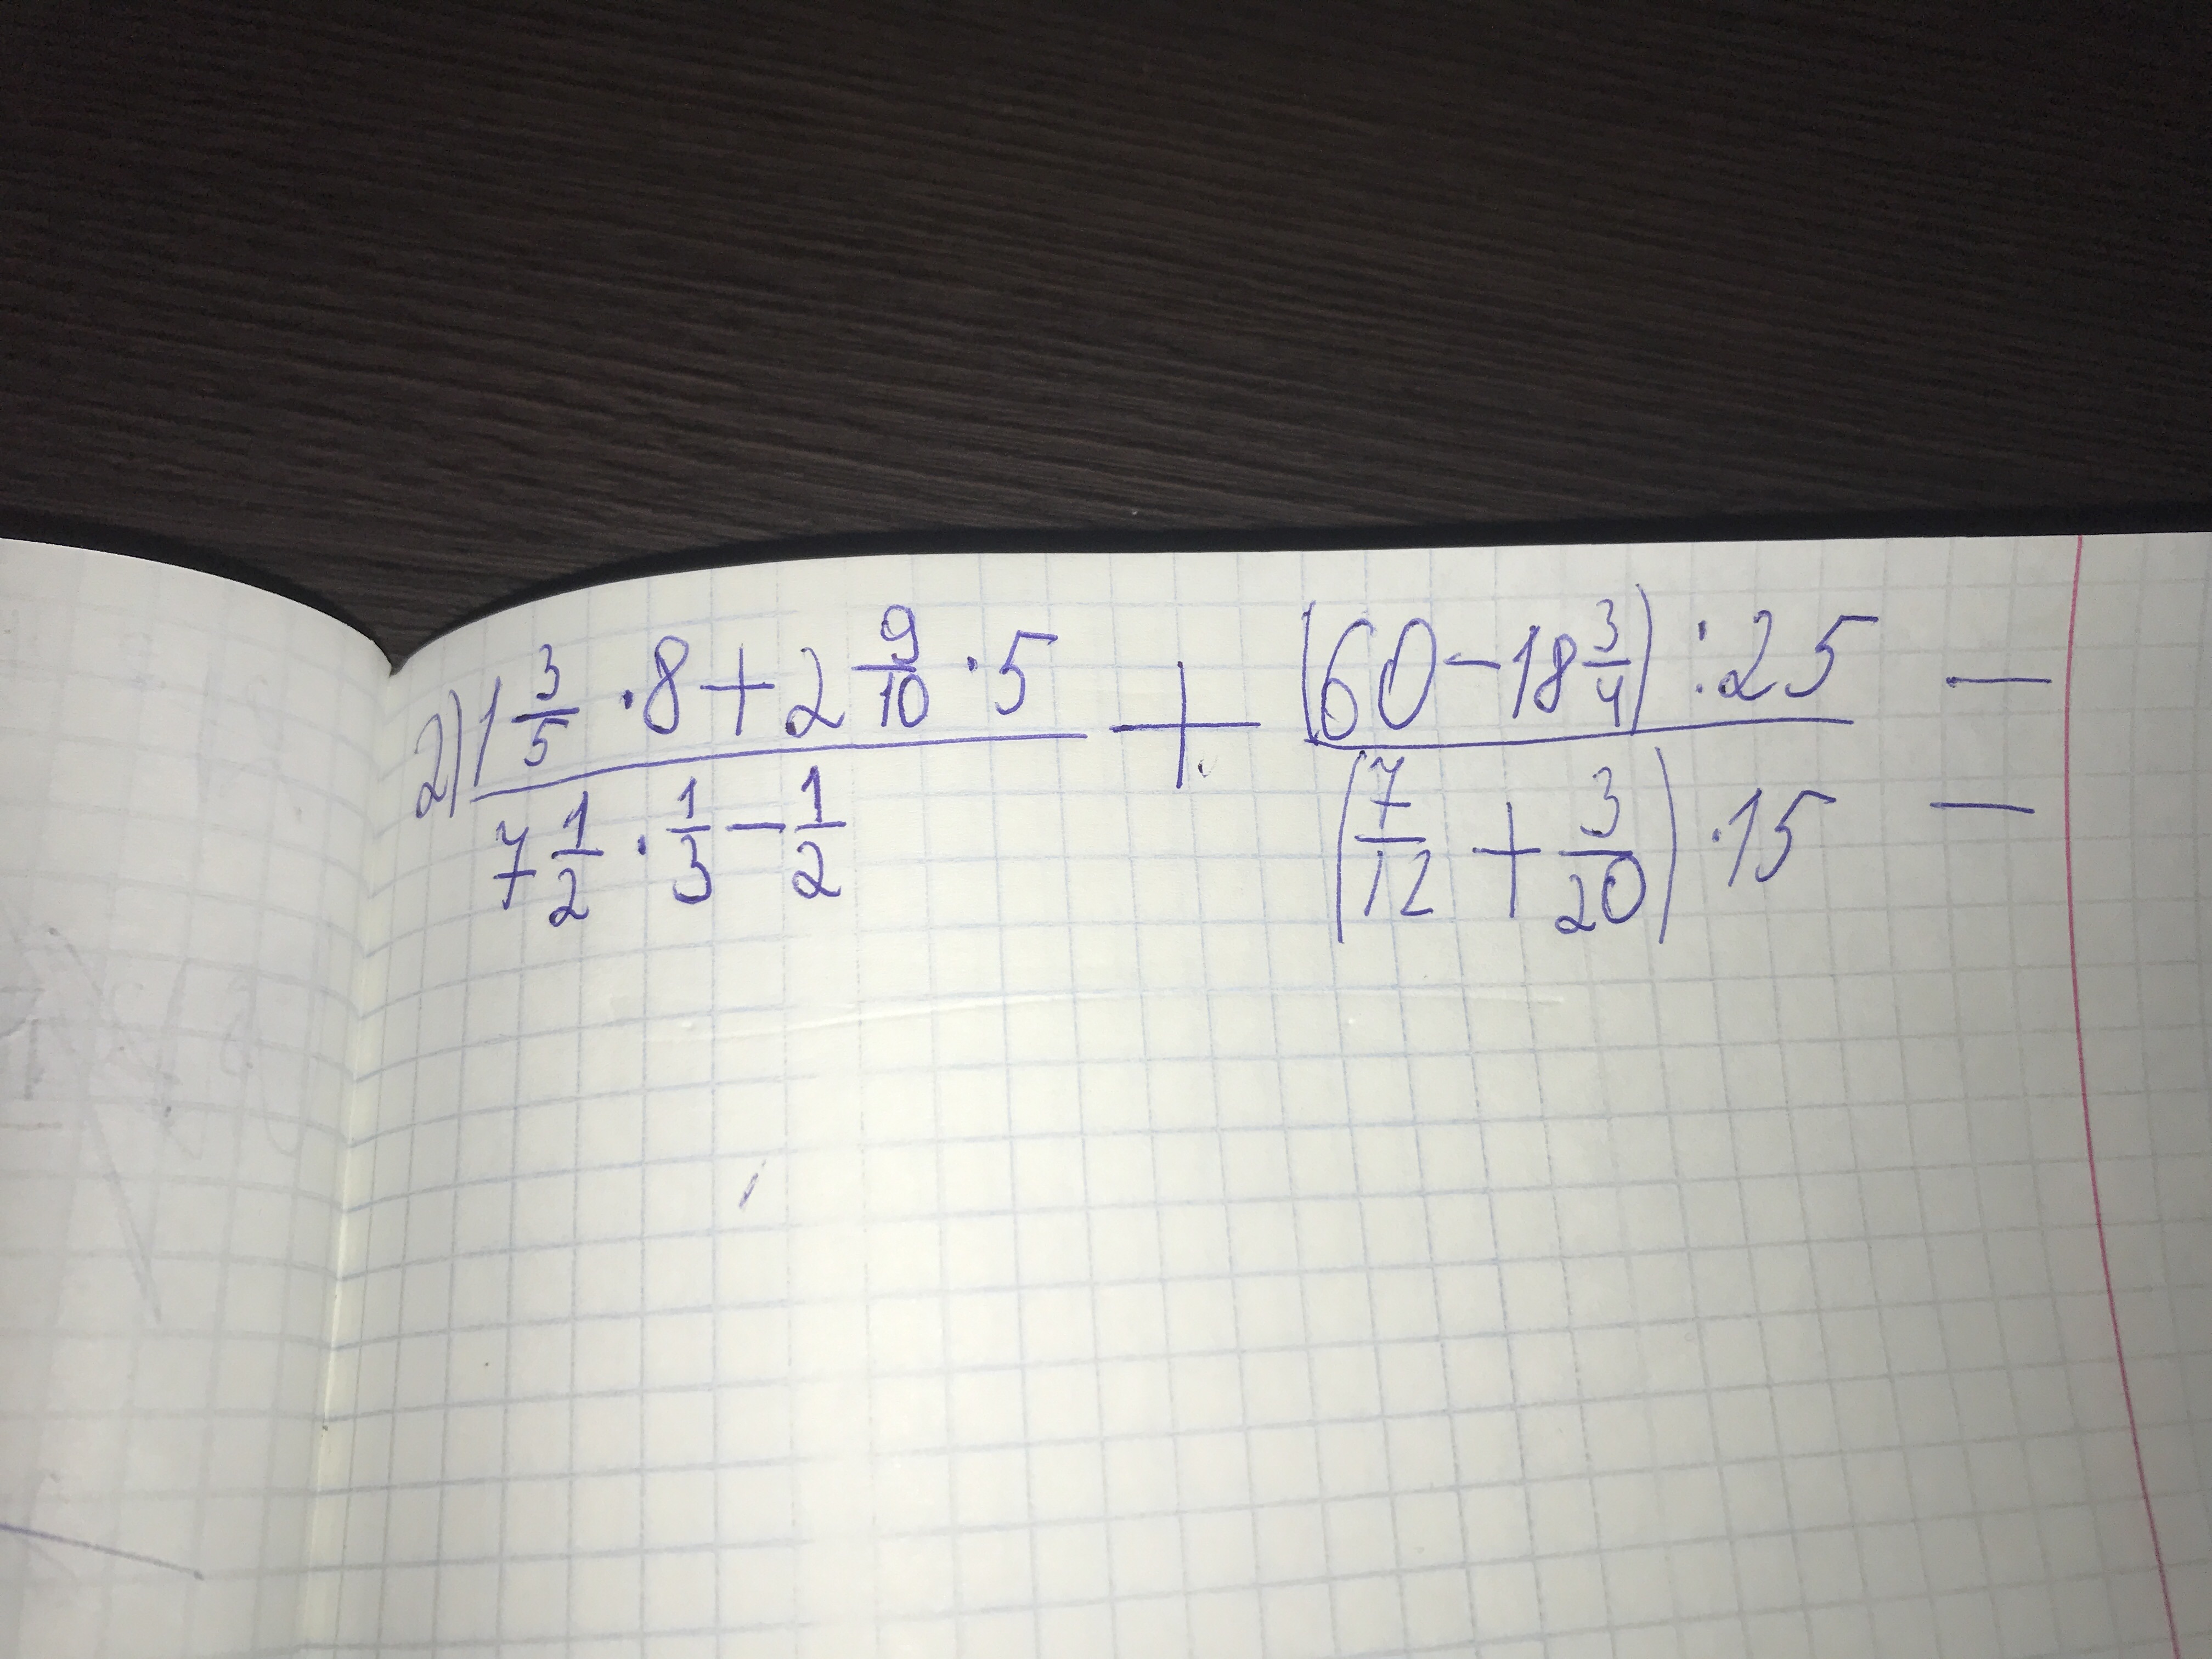 2) (1 3/5 · 8 + 2 9/10 · 5) / (7 1/2 · 1/3 - 1/2) + ((60 - 18 3/4) : 25) / ((7/12 + 3/20) · 15) =